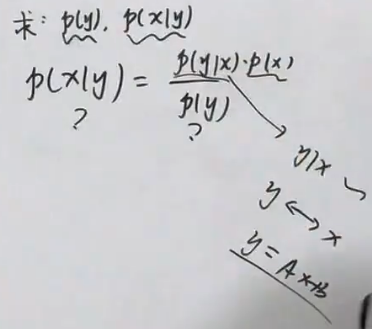 求: p(y), p(x|y)
p(x|y) = p(y|x)·p(x) / p(y)
? ?
y|x
y ↔ x
y = Ax+B